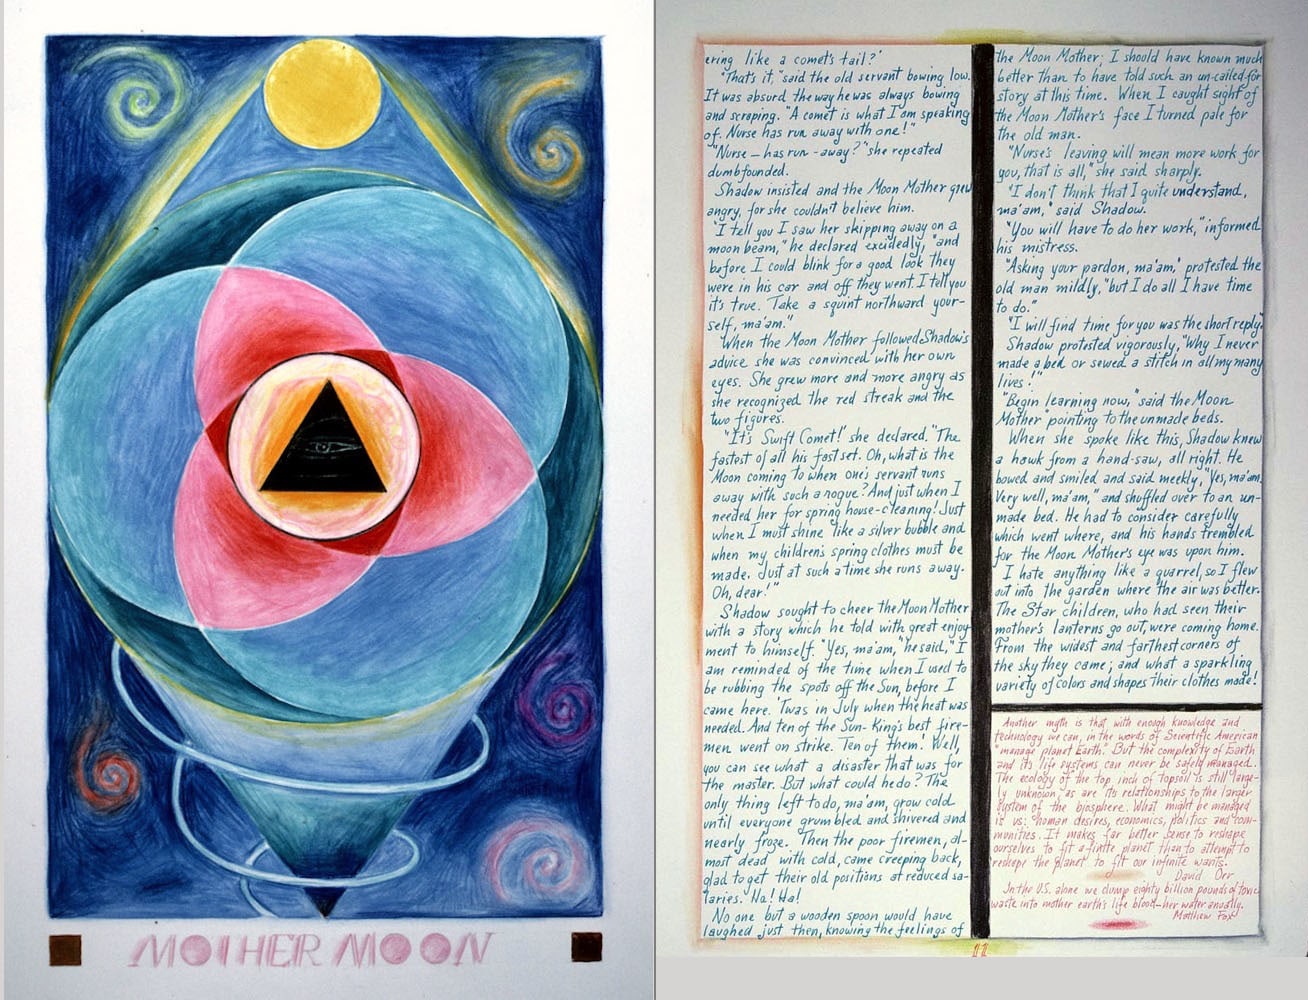 MOTHER MOON
ering like a comet's tail?"
"That's it," said the old servant bowing low.
It was absurd the way he was always bowing
and scraping. "A comet is what I am speaking
of. Nurse has run away with one!"
"Nurse – has run - away?" she repeated
dumbfounded.
Shadow insisted and the Moon Mother grew
angry, for she couldn't believe him.
"I tell you I saw her skipping away on a
moon beam," he declared excidedly, "and
before I could blink for a good look they
were in his car and off they went. I tell you
it's true. Take a squint northward your-
self, ma'am."
When the Moon Mother followed Shadow's
advice she was convinced with her own
eyes. She grew more and more angry as
she recognized the red streak and the
two figures.
"It's Swift Comet!" she declared. "The
fastest of all his fast set. Oh, what is the
Moon coming to when one's servant runs
away with such a rogue? And just when I
needed her for spring house-cleaning! Just
when I must shine like a silver bubble and
when my children's spring clothes must be
made. Just at such a time she runs away.
Oh, dear!"
Shadow sought to cheer the Moon Mother
with a story which he told with great enjoy-
ment to himself. "Yes, ma'am," he said, "I
am reminded of the time when I used to
be rubbing the spots off the Sun, before I
came here. 'Twas in July when the heat was
needed. And ten of the Sun-King's best fire-
men went on strike. Ten of them! Well,
you can see what a disaster that was for
the master. But what could he do? The
only thing left to do, ma'am, grow cold
until everyone grumbled and shivered and
nearly froze. Then the poor firemen, al-
most dead with cold, came creeping back,
glad to get their old positions at reduced sa-
laries. Ha! Ha!
No one but a wooden spoon would have
laughed just then, knowing the feelings of
the Moon Mother; I should have known much
better than to have told such an un-called-for
story at this time. When I caught sight of
the Moon Mother's face I turned pale for
the old man.
"Nurse's leaving will mean more work for
you, that is all," she said sharply.
"I don't think that I quite understand,
ma'am," said Shadow.
"You will have to do her work," informed
his mistress.
"Asking your pardon, ma'am," protested the
old man mildly, "but I do all I have time
to do."
"I will find time for you was the short reply."
Shadow protested vigorously, "Why I never
made a bed or sewed a stitch in all my many
lives!"
"Begin learning now," said the Moon
Mother" pointing to the unmade beds.
When she spoke like this, Shadow knew
a hawk from a hand-saw, all right. He
bowed and smiled and said meekly, "Yes, ma'am.
Very well, ma'am," and shuffled over to an un-
made bed. He had to consider carefully
which went where, and his hands trembled
for the Moon Mother's eye was upon him.
I hate anything like a quarrel, so I flew
out into the garden where the air was better.
The Star children, who had seen their
mother's lanterns go out, were coming home.
From the widest and farthest corners of
the sky they came; and what a sparkling
variety of colors and shapes their clothes made!
Another myth is that with enough knowledge and
technology we can, in the words of Scientific American
"manage planet Earth." But the complexity of Earth
and its life systems can never be safely managed.
The ecology of the top inch of topsoil is still large-
ly unknown, as are its relationships to the larger
system of the biosphere. What might be managed
is us: human desires, economics, politics and com-
munities. It makes far better sense to reshape
ourselves to fit a finite planet than to attempt to
reshape the planet to fit our infinite wants.
David Orr
In the U.S. alone we dump eighty billion pounds of toxic
waste into mother earth's life blood—her water anually.
Matthew Fox
11